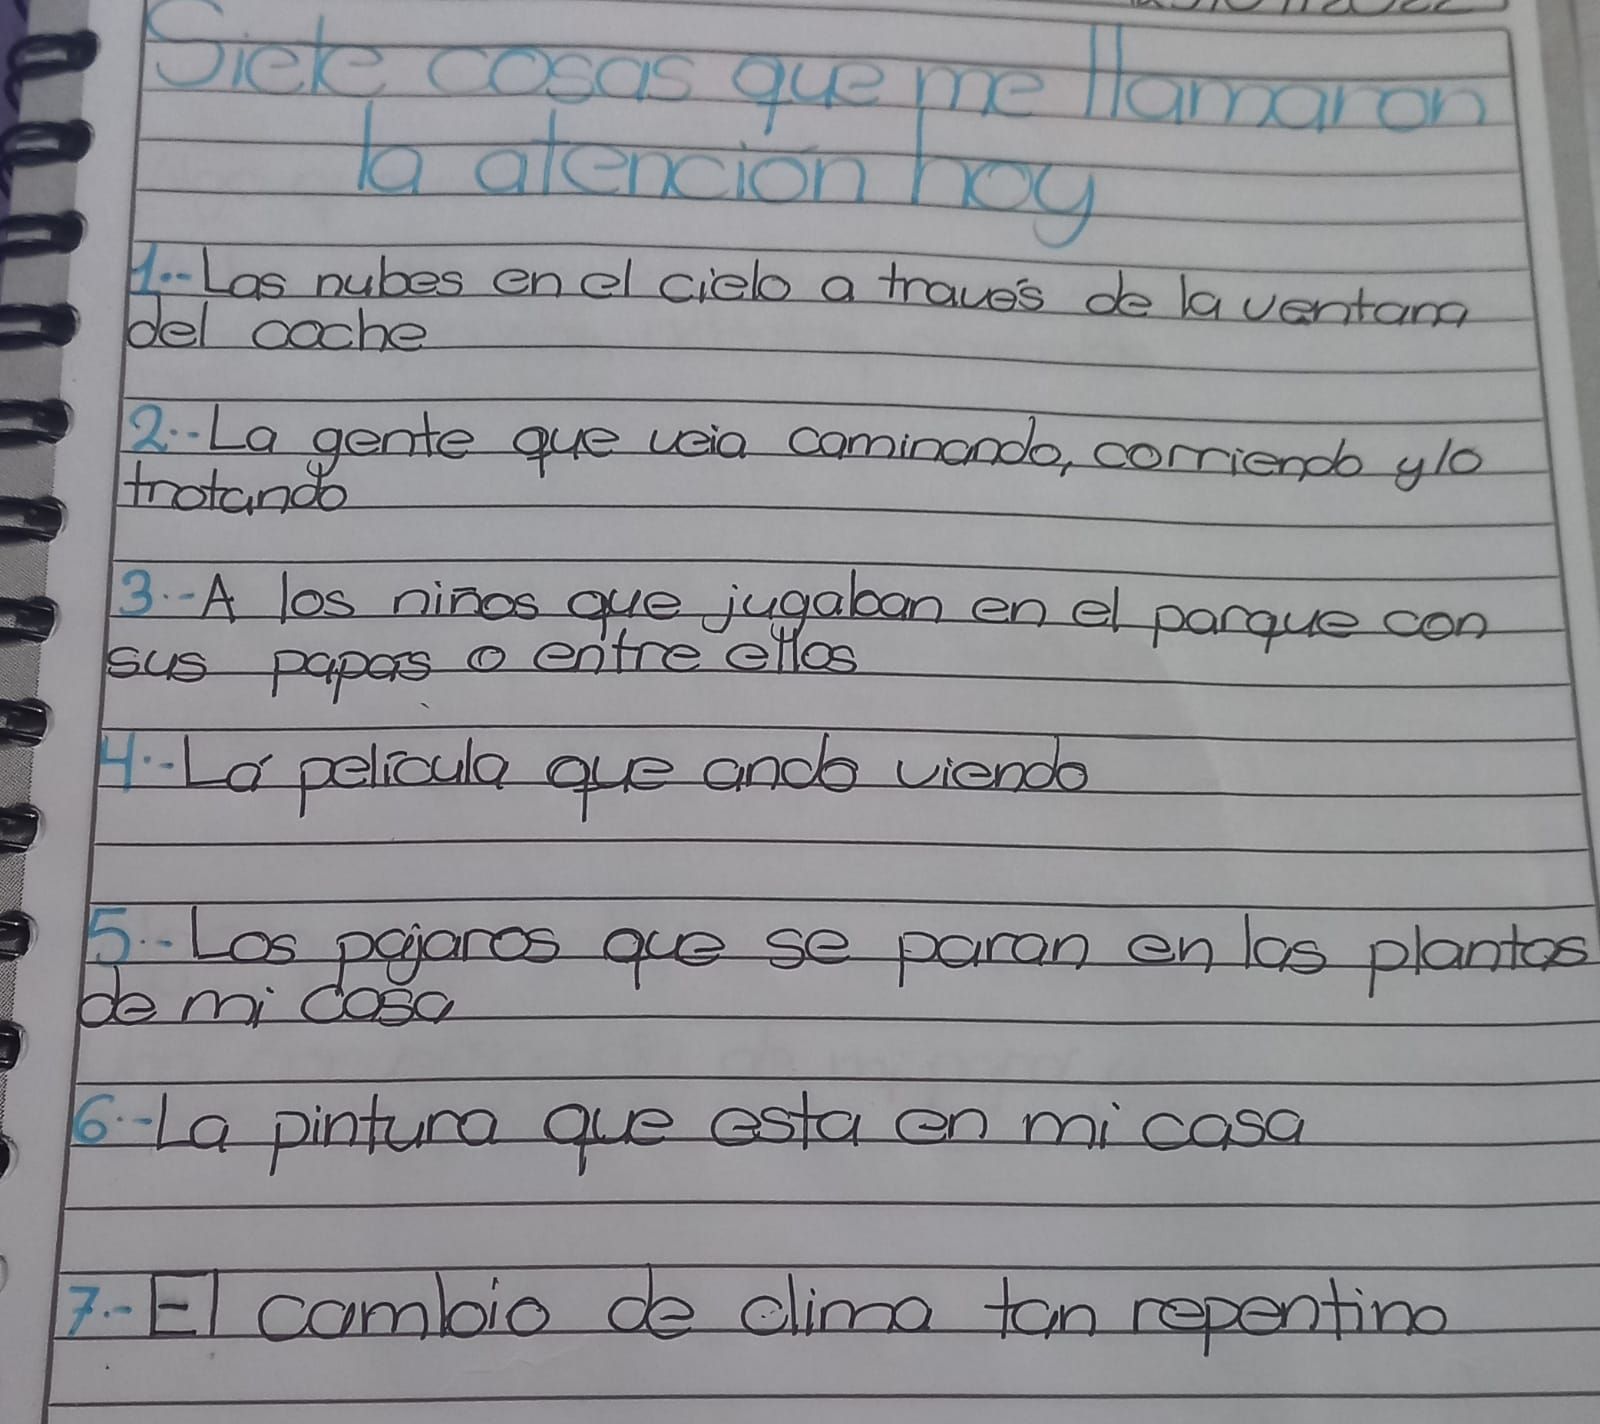 Siete cosas que me llamaron
la atencion hoy
1.- Las nubes en el cielo a través de la ventana
del coche
2.- La gente que veia caminando, corriendo y/o
trotando
3.- A los niños que jugaban en el parque con
sus papas o entre ellos
4.- La película que ando viendo
5.- Los pajaros que se paran en las plantas
de mi casa
6.- La pintura que esta en mi casa
7.- El cambio de clima tan repentino